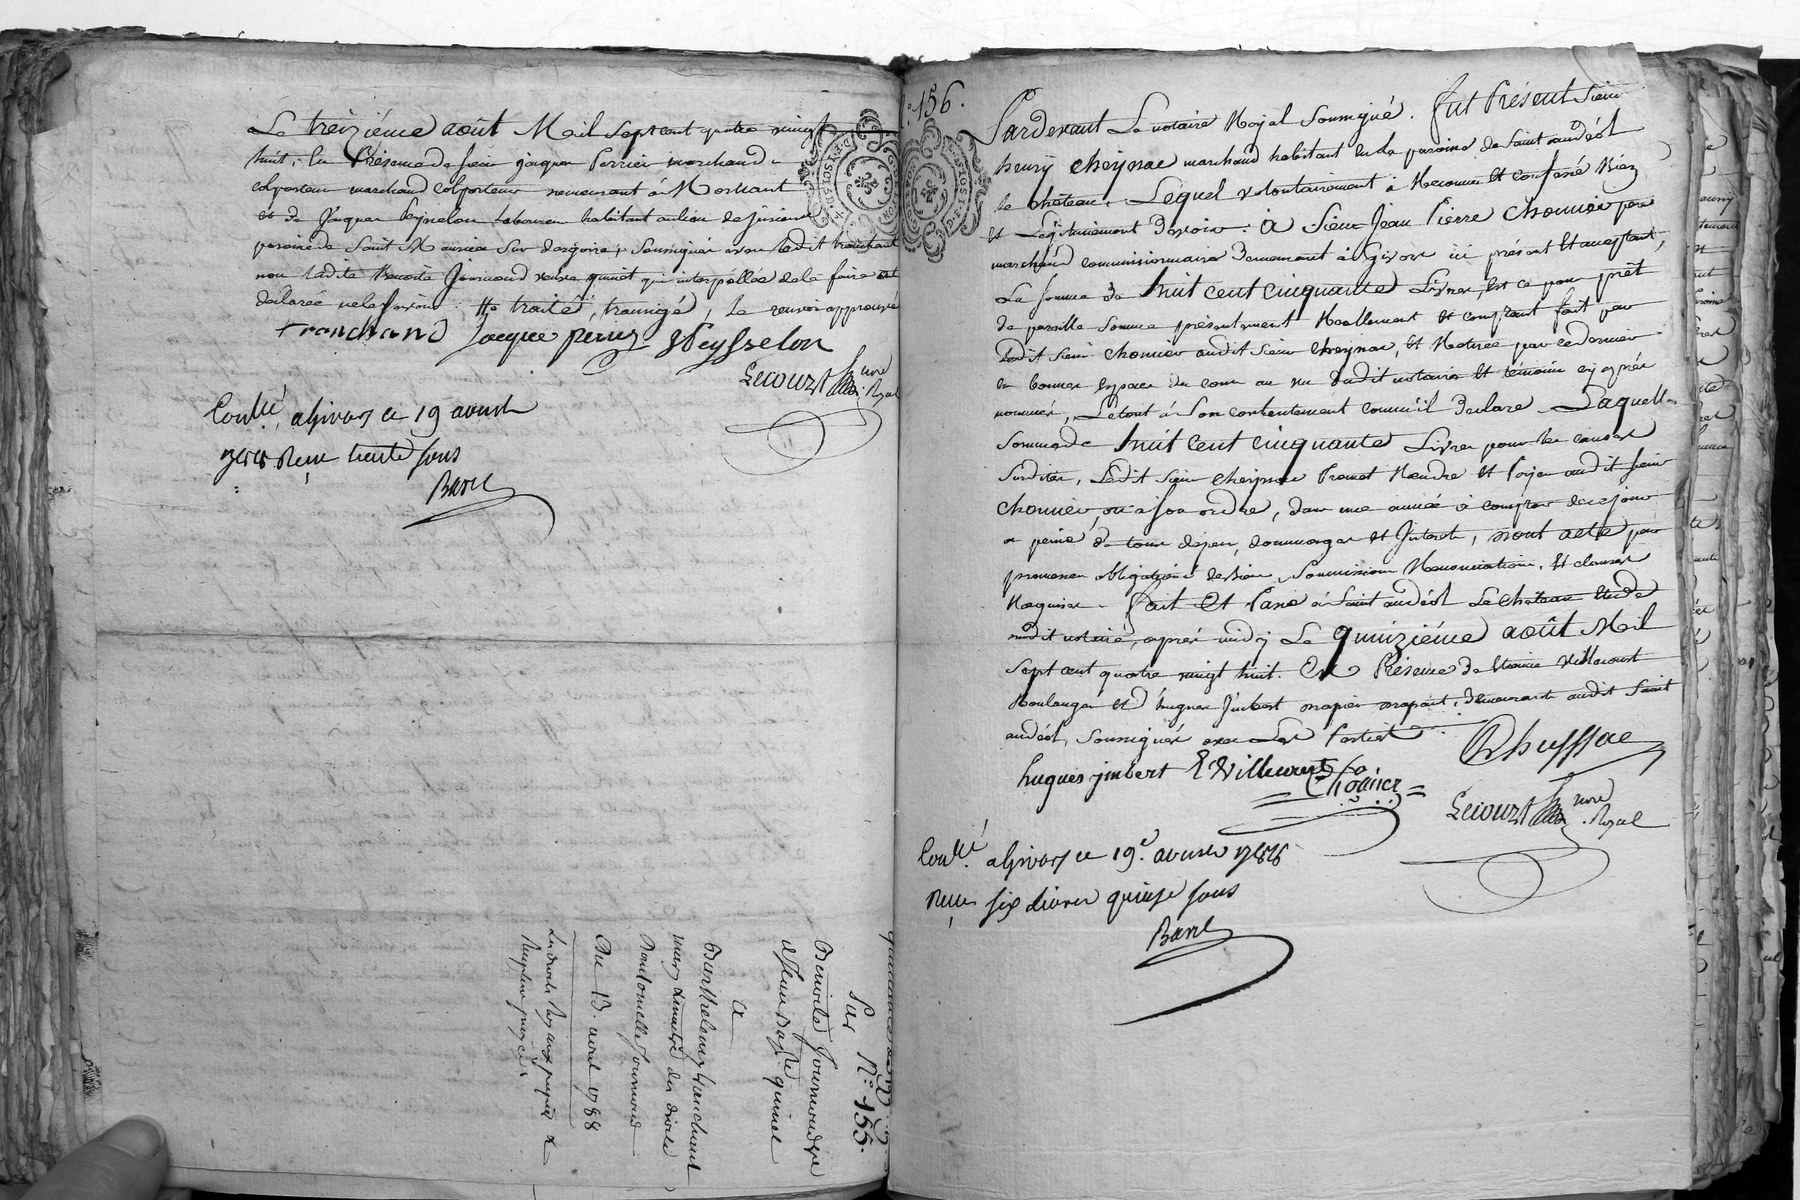 Le treiziéme août Mil sept cent quatre vingt
huit, en Présence de sieur jacques Perrier marchand
colporteur marchand colporteur demeurant à Mornant
et de Jacques Peysselon Laboureur habitant au lieu de
paroisse de Saint Maurice sur dargoire, soussignés avec ledit tranchant
non ladite Benoite Journoud veuve quinet qui interpellée de le faire a
declarée ne le savoir: traité, transigé, le renvoi approuvé
tranchand Jacque perrier Peysselon
Lecourt nore Royal
Conllé a Givors ce 19 aoust
1788 Reçu trente sous
Barel
quittance
Sur N° 155.
Benoite Journoud vve
de Jean Bapte quinet
a
Barthelemy tranchant
mary & maitre des droits
de Journoud
Du 13. aout 1788
N° 156.
Pardevant Le notaire Royal Soussigné. fut Présent sieur
henry cheynac marchand habitant en la paroisse de Saint andéol
le château, Lequel volontairement à Reconnu et confessé Bien
et Legitimement devoir: à Sieur Jean Pierre Chonier
marchand commissionnaire demeurant à Givors ici présent et acceptant,
La somme de huit cent cinquante Livres, est ce pour prêt
de pareille somme présentement Reellement et comptant fait par
ledit sieur chonier audit sieur cheynac, et Retirée par ce dernier
en bonnes especes du cours au vu dudit notaire et témoins cy après
nommés, Letout à son contentement comm'il declare. Laquelle
Somme de huit cent cinquante Livres pour les causes
susdites, Ledit sieur cheynac Promet Rendre et Payer audit sieur
chonier, ou a son ordre, dans une année à compter de ce jour
a peine de tous depens, dommages et Interets, dont acte par
promesses obligations de biens, Soumissions Renonciations, et clauses
Requises. fait et Passé à Saint andéol Le château Etude
dudit notaire, après midy Le quinziéme août Mil
Sept cent quatre vingt huit. En Présence de Etienne Villecourt
Boulanger et d'hugues Jmbert demeurants audit Saint
andéol, soussignés avec Les Parties.
hugues jmbert E Villecourt Chonier
Lecourt nore Royal
Conllé a Givors ce 19e. aoust 1788
Reçu six livres quinze sous
Barel